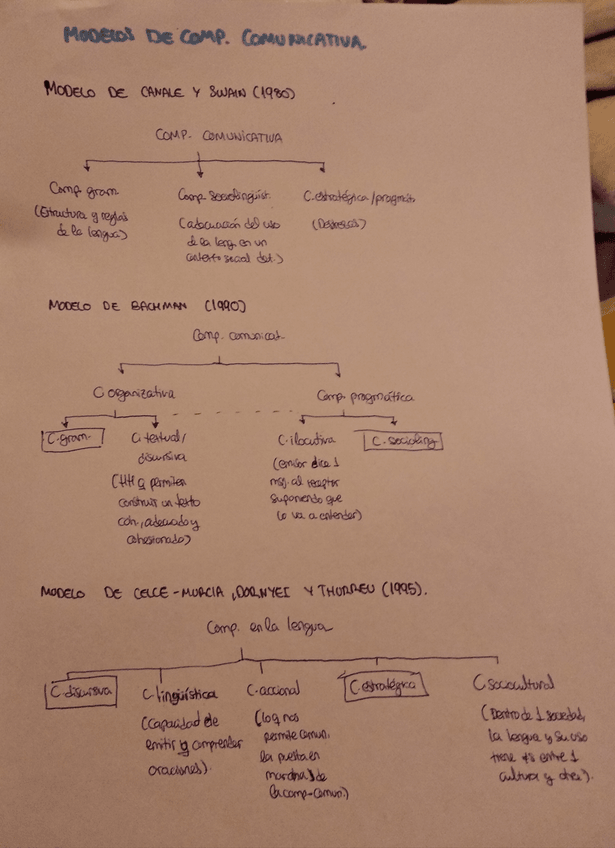 MODELOS DE COMP. COMUNICATIVA.
MODELO DE CANALE Y SWAIN (1980)
COMP. COMUNICATIVA
Comp. gram.
(Estructura y reglas
de la lengua)
Comp. Sociolingüíst.
(adecuación del uso
de la leng. en un
contexto social det.)
C. estratégica/pragmát.
(Destrezas)
MODELO DE BACHMAN (1990)
Comp. comunicat.
C organizativa
Comp. pragmática
C. gram.
C. textual/
discursiva
(HH q permiten
construir un texto
coh., adecuado y
cohesionado)
C. ilocutiva
(emisor dice 1
msj. al receptor
suponiendo que
lo va a entender)
C. socioling.
MODELO DE CELCE-MURCIA, DÖRNYEI Y THURREU (1995).
Comp. en la lengua
C. discursiva
C. lingüística
(Capacidad de
emitir y comprender
oraciones).
C. accional
(lo q nos
permite comun.
la puesta en
marcha de
la comp. comun.)
C. estratégica
C. sociocultural
(Dentro de 1 sociedad,
la lengua y su uso
tiene ≠s entre 1
cultura y otra).